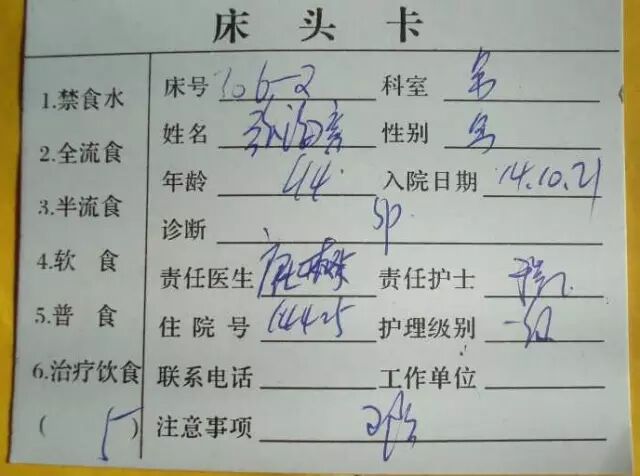 床头卡
1.禁食水
2.全流食
3.半流食
4.软 食
5.普 食
6.治疗饮食
( 5 )
床号 706-2 科室
姓名 性别
年龄 44 入院日期 14.10.21
诊断 SP
责任医生 责任护士
住院号 14425 护理级别 一级
联系电话 工作单位
注意事项